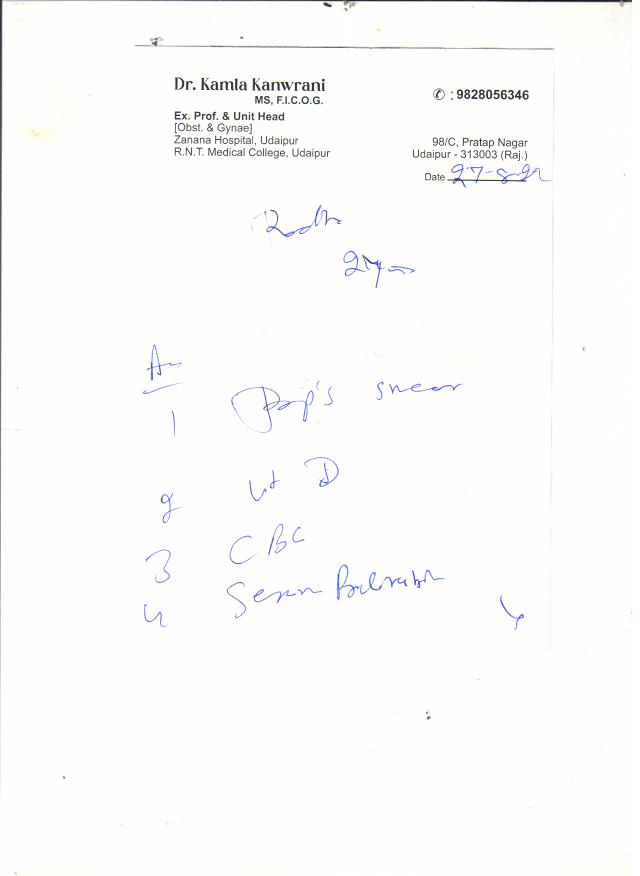 Dr. Kamla Kanwrani
MS, F.I.C.O.G.
Ex. Prof. & Unit Head
[Obst. & Gynae]
Zanana Hospital, Udaipur
R.N.T. Medical College, Udaipur
✆ : 9828056346
98/C, Pratap Nagar
Udaipur - 313003 (Raj.)
Date 27-8-22
Radha
1 Pap's smear
2 Vit D
3 CBC
4 Serum